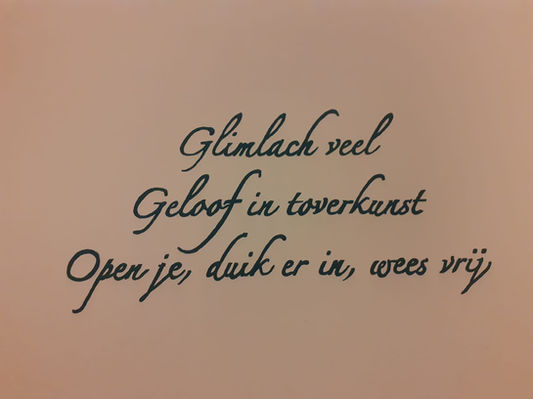 Glimlach veel
Geloof in toverkunst
Open je, duik er in, wees vrij